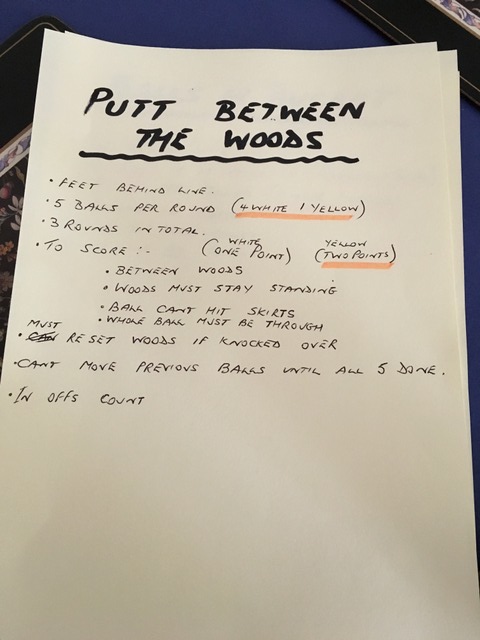 PUTT BETWEEN
THE WOODS
• FEET BEHIND LINE.
• 5 BALLS PER ROUND (4 WHITE 1 YELLOW)
• 3 ROUNDS IN TOTAL.
WHITE YELLOW
• TO SCORE :- (ONE POINT) (TWO POINTS)
• BETWEEN WOODS
• WOODS MUST STAY STANDING
• BALL CANT HIT SKIRTS
• WHOLE BALL MUST BE THROUGH
MUST
• CAN RESET WOODS IF KNOCKED OVER
• CANT MOVE PREVIOUS BALLS UNTIL ALL 5 DONE.
• IN OFFS COUNT